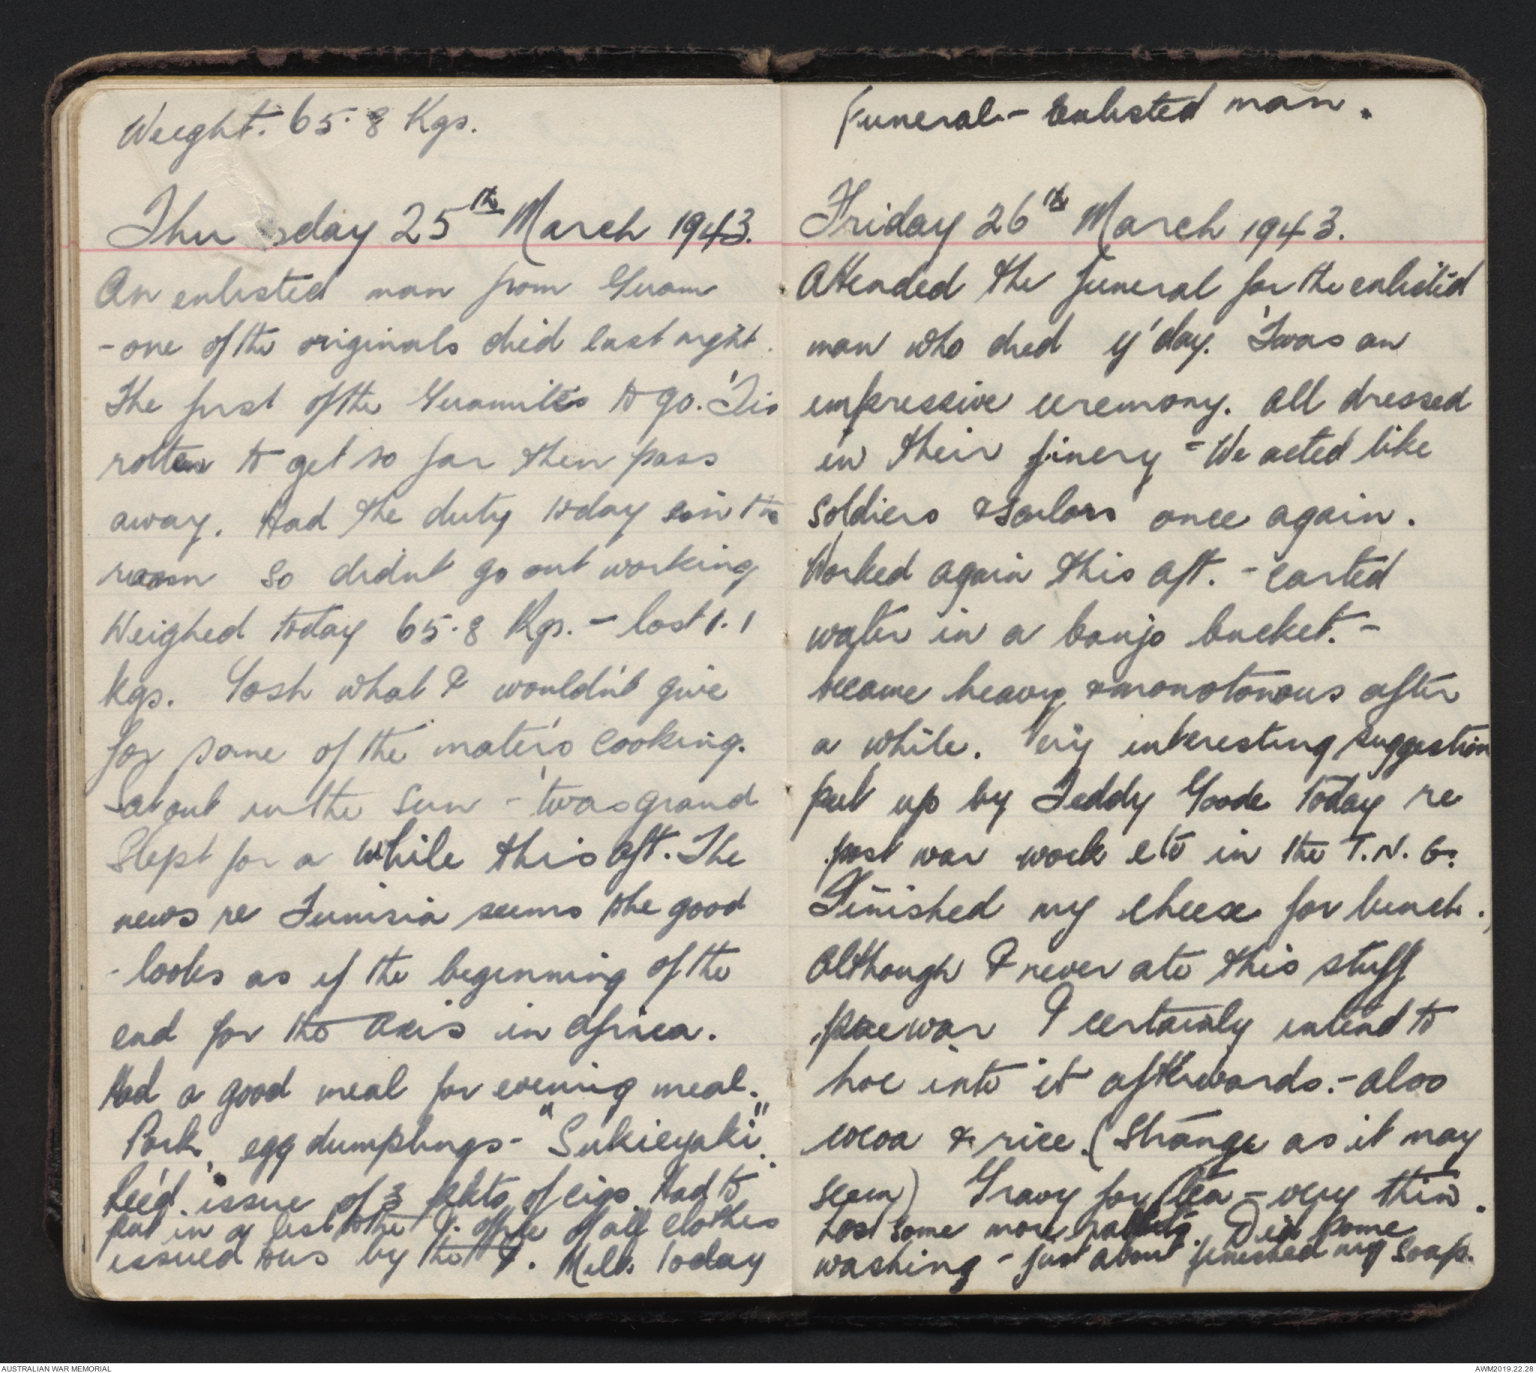 Weight. 65.8 Kgs.
Thursday 25th March 1943.
An enlisted man from Guam
- one of the originals died last night.
The first of the Guamites to go. 'Tis
rotten to get so far then pass
away. Had the duty today in the
room so didnt go out working
Weighed today 65.8 Kgs. - lost 1.1
Kgs. Gosh what I wouldn't give
for some of the mater's cooking.
Sat out in the sun - 'twas grand
Slept for a while this aft. The
news re Tunisia seems the good
- looks as if the beginning of the
end for the Axis in Africa.
Had a good meal for evening meal.
Pork, egg dumplings - "Sukieyaki".
Rec'd. issue of 3 pkts of cigs. Had to
put in a list to the J. office of all clothes
issued to us by the J. Milk today
Funeral - Enlisted man.
Friday 26th March 1943.
Attended the funeral for the enlisted
man who died y'day. 'Twas an
impressive ceremony. All dressed
in their finery - We acted like
soldiers & sailors once again.
Worked again this aft. - carted
water in a banjo bucket. -
became heavy & monotonous after
a while. Very interesting suggestion
put up by Teddy Goode today re
post war work etc in the T.N.G.
Finished my cheese for lunch.
Although I never ate this stuff
prewar I certainly intend to
hoe into it afterwards. - also
cocoa & rice. (Strange as it may
seem) Gravy for tea - very thin.
Lost some more rabbits. Did some
washing - just about finished my soap.